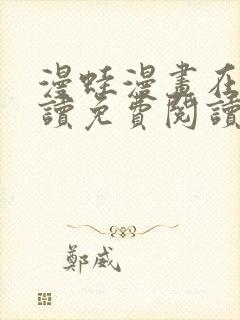 漫蛙漫畫在
讀免費閱讀
鄭威